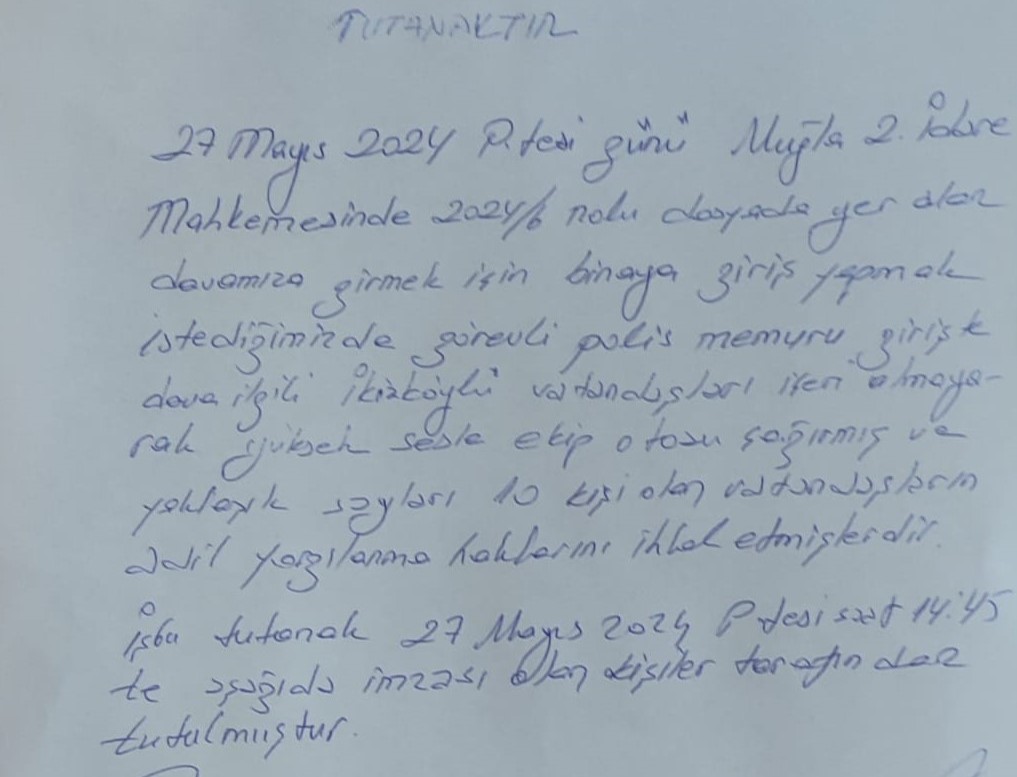 TUTANAKTIR
27 Mayıs 2024 P.tesi günü Muğla 2. İdare
Mahkemesinde 2024/6 nolu dosyada yer alan
davamıza girmek için binaya giriş yapmak
istediğimizde görevli polis memuru girişte
dava ilgili İkizköylü vatandaşları içeri almaya-
rak yüksek sesle ekip otosu çağırmış ve
yaklaşık sayıları 10 kişi olan vatandaşların
adil yargılanma haklarını ihlal etmişlerdir.
İşbu tutanak 27 Mayıs 2024 P.tesi saat 14:45
te aşağıda imzası olan kişiler tarafından
tutulmuştur.